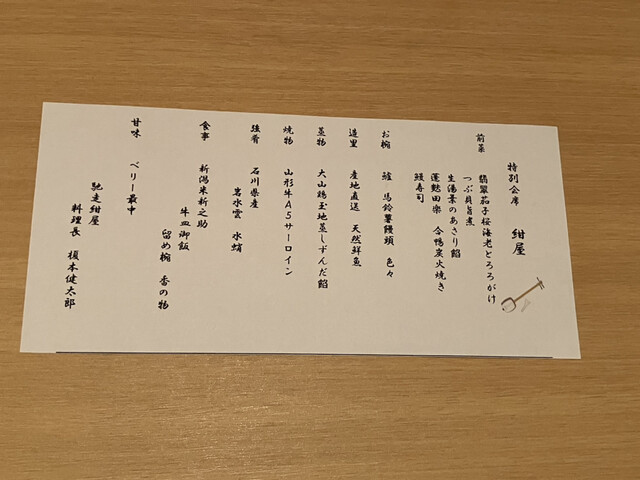 特別会席 紺屋
前菜 翡翠茄子桜海老とろろがけ
つぶ貝旨煮
生湯葉のあさり餡
蓮麩田楽 合鴨炭火焼き
鰻寿司
お椀 鱸 馬鈴薯饅頭 色々
造里 産地直送 天然鮮魚
蒸物 大山鶏玉地蒸しずんだ餡
焼物 山形牛A5サーロイン
強肴 石川県産
岩水雲 水蛸
食事 新潟米新之助
牛皿御飯
留め椀 香の物
甘味 ベリー最中
馳走紺屋
料理長 榎本健太郎